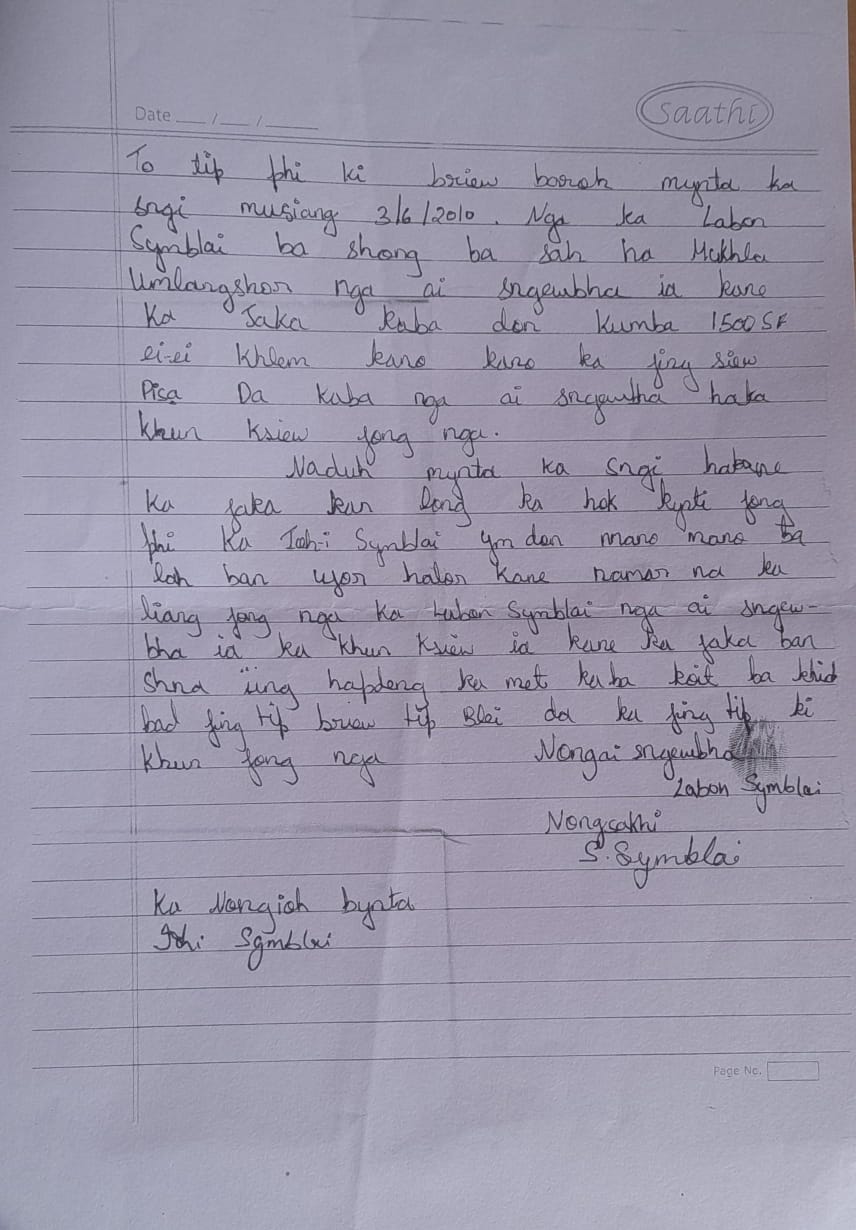 Date __/__/____
Saathi
To tip phi ki briew baroh mynta ka
sngi musiang 3/6/2010. Nga ka Labon
Symblai ba shong ba sah ha Mukhla
Umlangshor nga ai sngewbha ia kane
Ka Jaka kaba don kumba 1500 SF
ei-ei Khlem kano kano ka jing siew
Pisa Da kaba nga ai sngewbha haka
khun Ksiew jong nga.
Naduh mynta ka sngi hakane
Ka jaka kan long ka hok kynti jong
phi Ka Ioh-i Symblai ym don mano mano ba
lah ban wjor halor kane namar na ka
liang jong nga Ka Labon Symblai nga ai sngew-
bha ia ka khun Ksiew ia kane ka jaka ban
Shna iing hapdeng ka met kaba koit ba khid
bad jing tip briew tip Blei da ka jing tip ki
khun jong nga Nongai sngewbha
Labon Symblai
Nongsakhi
S. Symblai
Ka Nongioh bynta
Symblai
Page No.